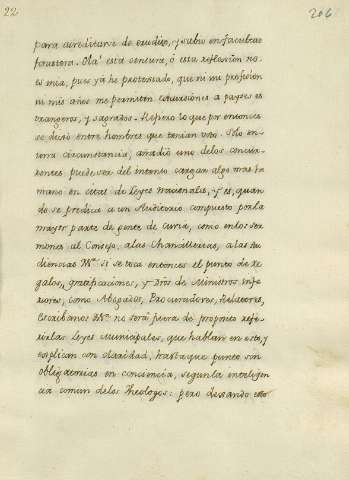 22
206
para acreditarse de erudito, y sabio en facultad
forastera. Ola! esta censura, ó esta reflexîon no
es mia, pues yà he protestado, que ni mi profesion
ni mis años me permiten excursiones à payses es
trangeros, y sagrados. Refiero lo que por entonces
se dixo entre hombres que tenian voto. Solo en
cierta circunstancia, añadió uno delos concur
rentes puede ser del intento cargar algo mas la
mano en citas de Leyes nacionales, y es, quan
do se predica à un Auditorio compuesto por la
mayor parte de gente de Curia, como en los ser
mones al Consejo, a las Chancillerias, a las Au
diencias &c. si se toca entonces el punto de re
galos, gratificaciones, y de Ministros infe
riores, como Abogados, Procuradores, Relatores,
Escribanos &c. no será fuera de proposito refe
rir las Leyes municipales, que hablan en esto, y
explican con claridad, hasta que punto son
obligatorias en conciencia, segun la inteligen
cia comun delos Theologos: pero dexando esto